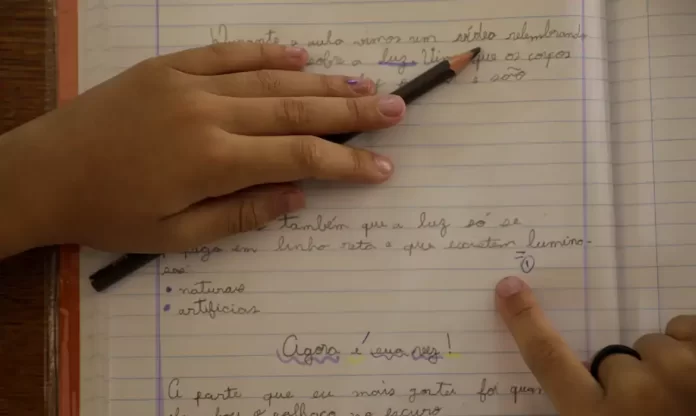 Durante a aula vimos um vídeo relembrando
sobre a luz. Vimos que os corpos
e são
também que a luz só se
propaga em linha reta e que existem lumino-
sos
①
• naturais
• artificias
Agora é sua vez!
A parte que eu mais gostei foi quan
o palhaço no escuro